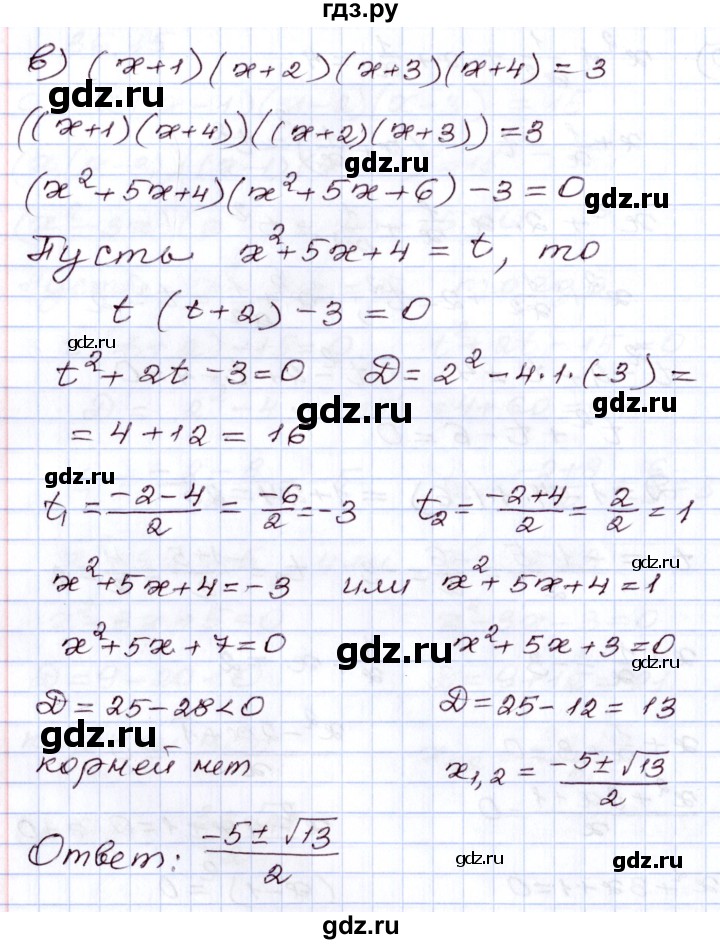 гдз.ру
в) (x+1)(x+2)(x+3)(x+4) = 3
gdz.ru
((x+1)(x+4))((x+2)(x+3)) = 3
gdz.ru
(x²+5x+4)(x²+5x+6) - 3 = 0
gdz.ru
Пусть x²+5x+4 = t, то
t(t+2) - 3 = 0
gdz.ru
t²+2t-3=0 D = 2²-4·1·(-3) =
gdz.ru
= 4+12 = 16
gdz.ru
gdz.ru
t₁ = (-2-4)/2 = -6/2 = -3 t₂ = (-2+4)/2 = 2/2 = 1
gdz.ru
x²+5x+4=-3 или x²+5x+4=1
x²+5x+7=0 x²+5x+3=0
gdz.ru
gdz.ru
D=25-28<0 D=25-12=13
gdz.ru
корней нет x₁,₂ = (-5±√13)/2
Ответ: (-5±√13)/2
gdz.ru
gdz.ru
gdz.ru